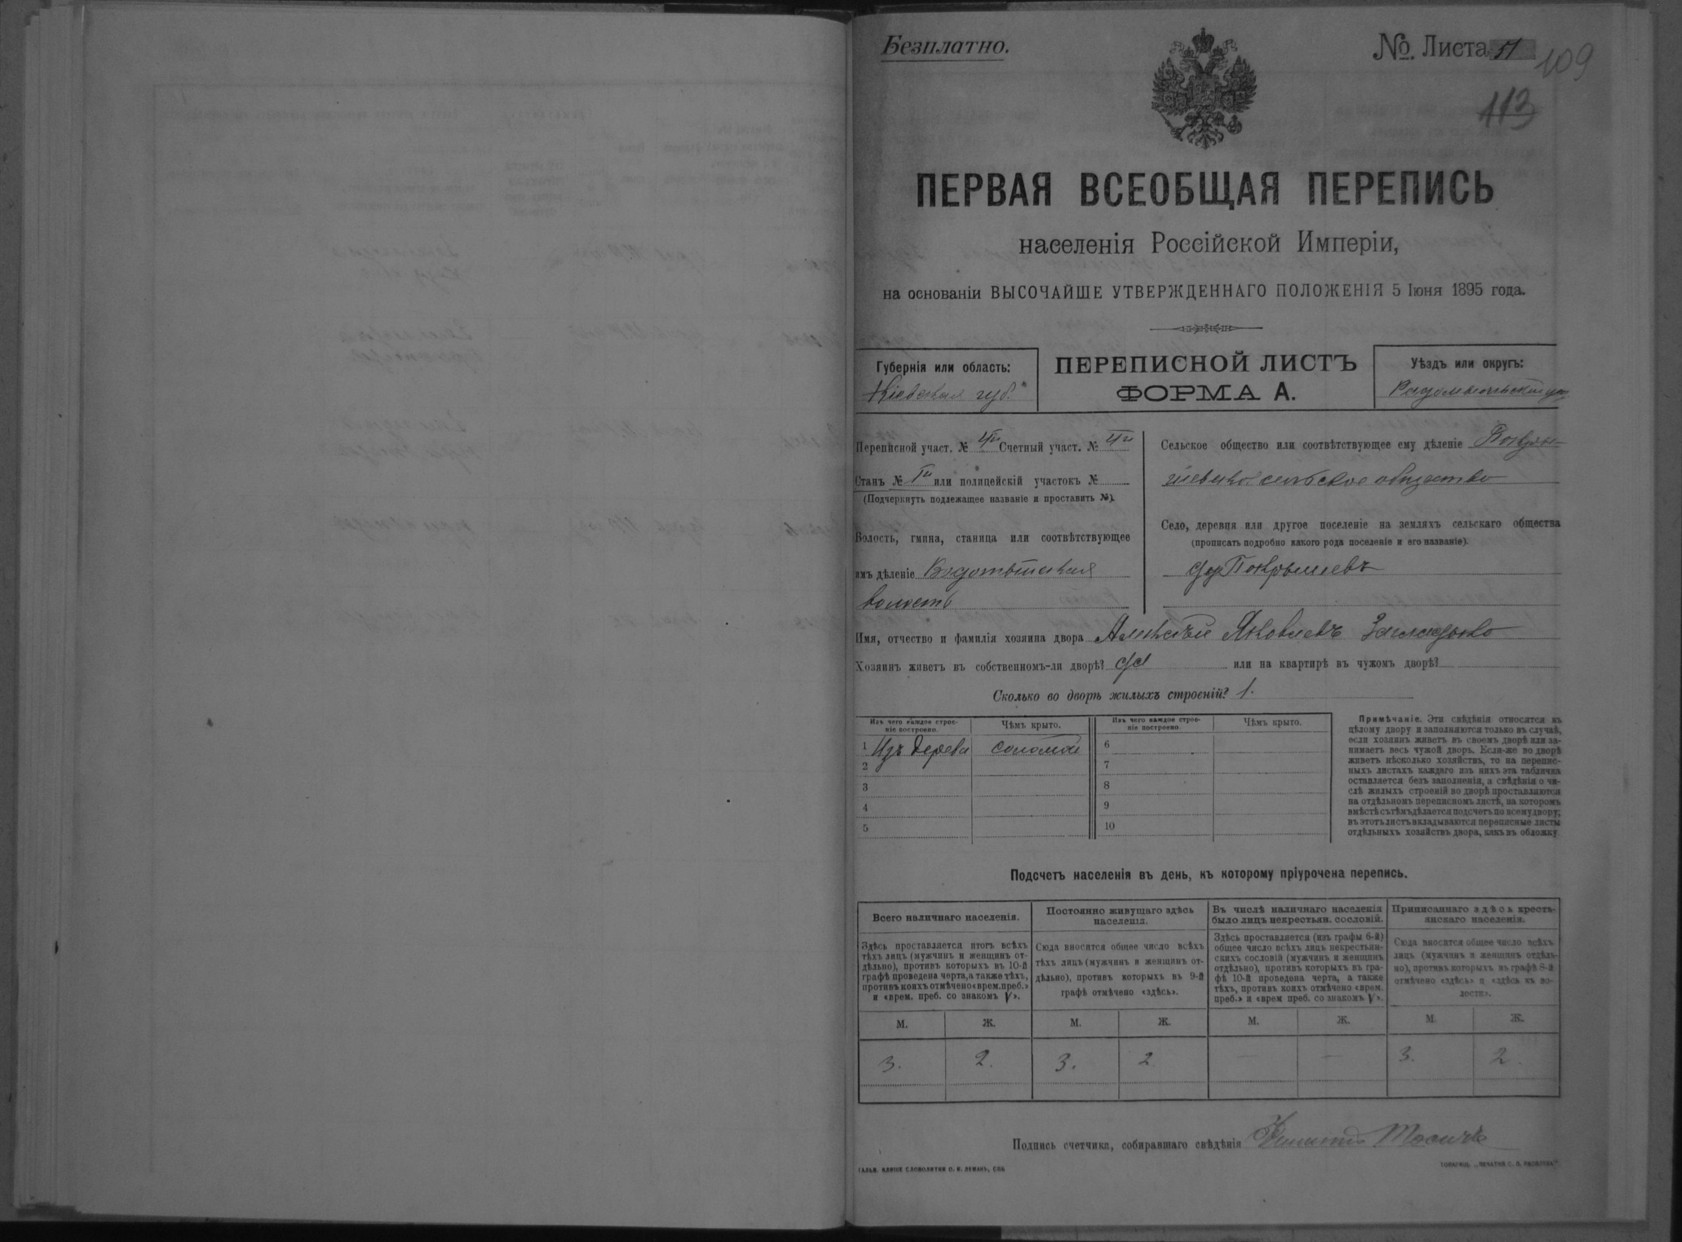 Безплатно.
№. Листа 51
109
113
ПЕРВАЯ ВСЕОБЩАЯ ПЕРЕПИСЬ
населенія Россійской Имперіи,
на основаніи ВЫСОЧАЙШЕ УТВЕРЖДЕННАГО ПОЛОЖЕНІЯ 5 Іюня 1895 года.
Губернія или область:
Кіевская губ.
ПЕРЕПИСНОЙ ЛИСТЪ
ФОРМА А.
Уѣздъ или округъ:
Радомысльскій
Переписной участ. № 4й Счетный участ. № 4й
Станъ № или полицейскій участокъ №
(Подчеркнуть подлежащее названіе и проставить №).
Волость, гмина, станица или соотвѣтствующее
имъ дѣленіе
волость
Сельское общество или соотвѣтствующее ему дѣленіе
сельское общество
Село, деревня или другое поселеніе на земляхъ сельскаго общества
(прописать подробно какого рода поселеніе и его названіе).
Имя, отчество и фамилія хозяина двора Алексѣй Яковлевъ
Хозяинъ живетъ въ собственномъ-ли дворѣ? да или на квартирѣ въ чужомъ дворѣ?
Сколько во дворѣ жилыхъ строеній? 1.
Изъ чего каждое строе-
ніе построено.
Чѣмъ крыто.
1 Изъ дерева соломой
2
3
4
5
Изъ чего каждое строе-
ніе построено.
Чѣмъ крыто.
6
7
8
9
10
Примѣчаніе. Эти свѣдѣнія относятся къ
цѣлому двору и заполняются только въ случаѣ,
если хозяинъ живетъ въ своемъ дворѣ или за-
нимаетъ весь чужой дворъ. Если-же во дворѣ
живетъ нѣсколько хозяйствъ, то на перепис-
ныхъ листахъ каждаго изъ нихъ эта табличка
оставляется безъ заполненія, а свѣдѣнія о чи-
слѣ жилыхъ строеній во дворѣ проставляются
на отдѣльномъ переписномъ листѣ, на которомъ
вмѣстѣ съ тѣмъ дѣлается подсчетъ по всему двору;
въ этотъ листъ вкладываются переписные листы
отдѣльныхъ хозяйствъ двора, какъ въ обложку.
Подсчетъ населенія въ день, къ которому пріурочена перепись.
Всего наличнаго населенія.
Здѣсь проставляется итогъ всѣхъ
тѣхъ лицъ (мужчинъ и женщинъ от-
дѣльно), противъ которыхъ въ 10-й
графѣ проведена черта, а также тѣхъ,
противъ коихъ отмѣчено «врем. преб.»
и «врем. преб. со знакомъ V».
Постоянно живущаго здѣсь
населенія.
Сюда вносится общее число всѣхъ
тѣхъ лицъ (мужчинъ и женщинъ от-
дѣльно), противъ которыхъ въ 9-й
графѣ отмѣчено «здѣсь».
Въ числѣ наличнаго населенія
было лицъ некрестьян. сословій.
Здѣсь проставляется (изъ графы 6-й)
общее число всѣхъ лицъ некрестьян-
скихъ сословій (мужчинъ и женщинъ
отдѣльно), противъ которыхъ въ гра-
фѣ 10-й проведена черта, а также
тѣхъ, противъ коихъ отмѣчено «врем.
преб.» и «врем преб. со знакомъ V».
Приписаннаго здѣсь кресть-
янскаго населенія.
Сюда вносится общее число всѣхъ
лицъ (мужчинъ и женщинъ отдѣль-
но), противъ которыхъ въ графѣ 8-й
отмѣчено «здѣсь» и «здѣсь въ во-
лости».
М. Ж. М. Ж. М. Ж. М. Ж.
3. 2. 3. 2 — — 3. 2.
Подпись счетчика, собиравшаго свѣдѣнія